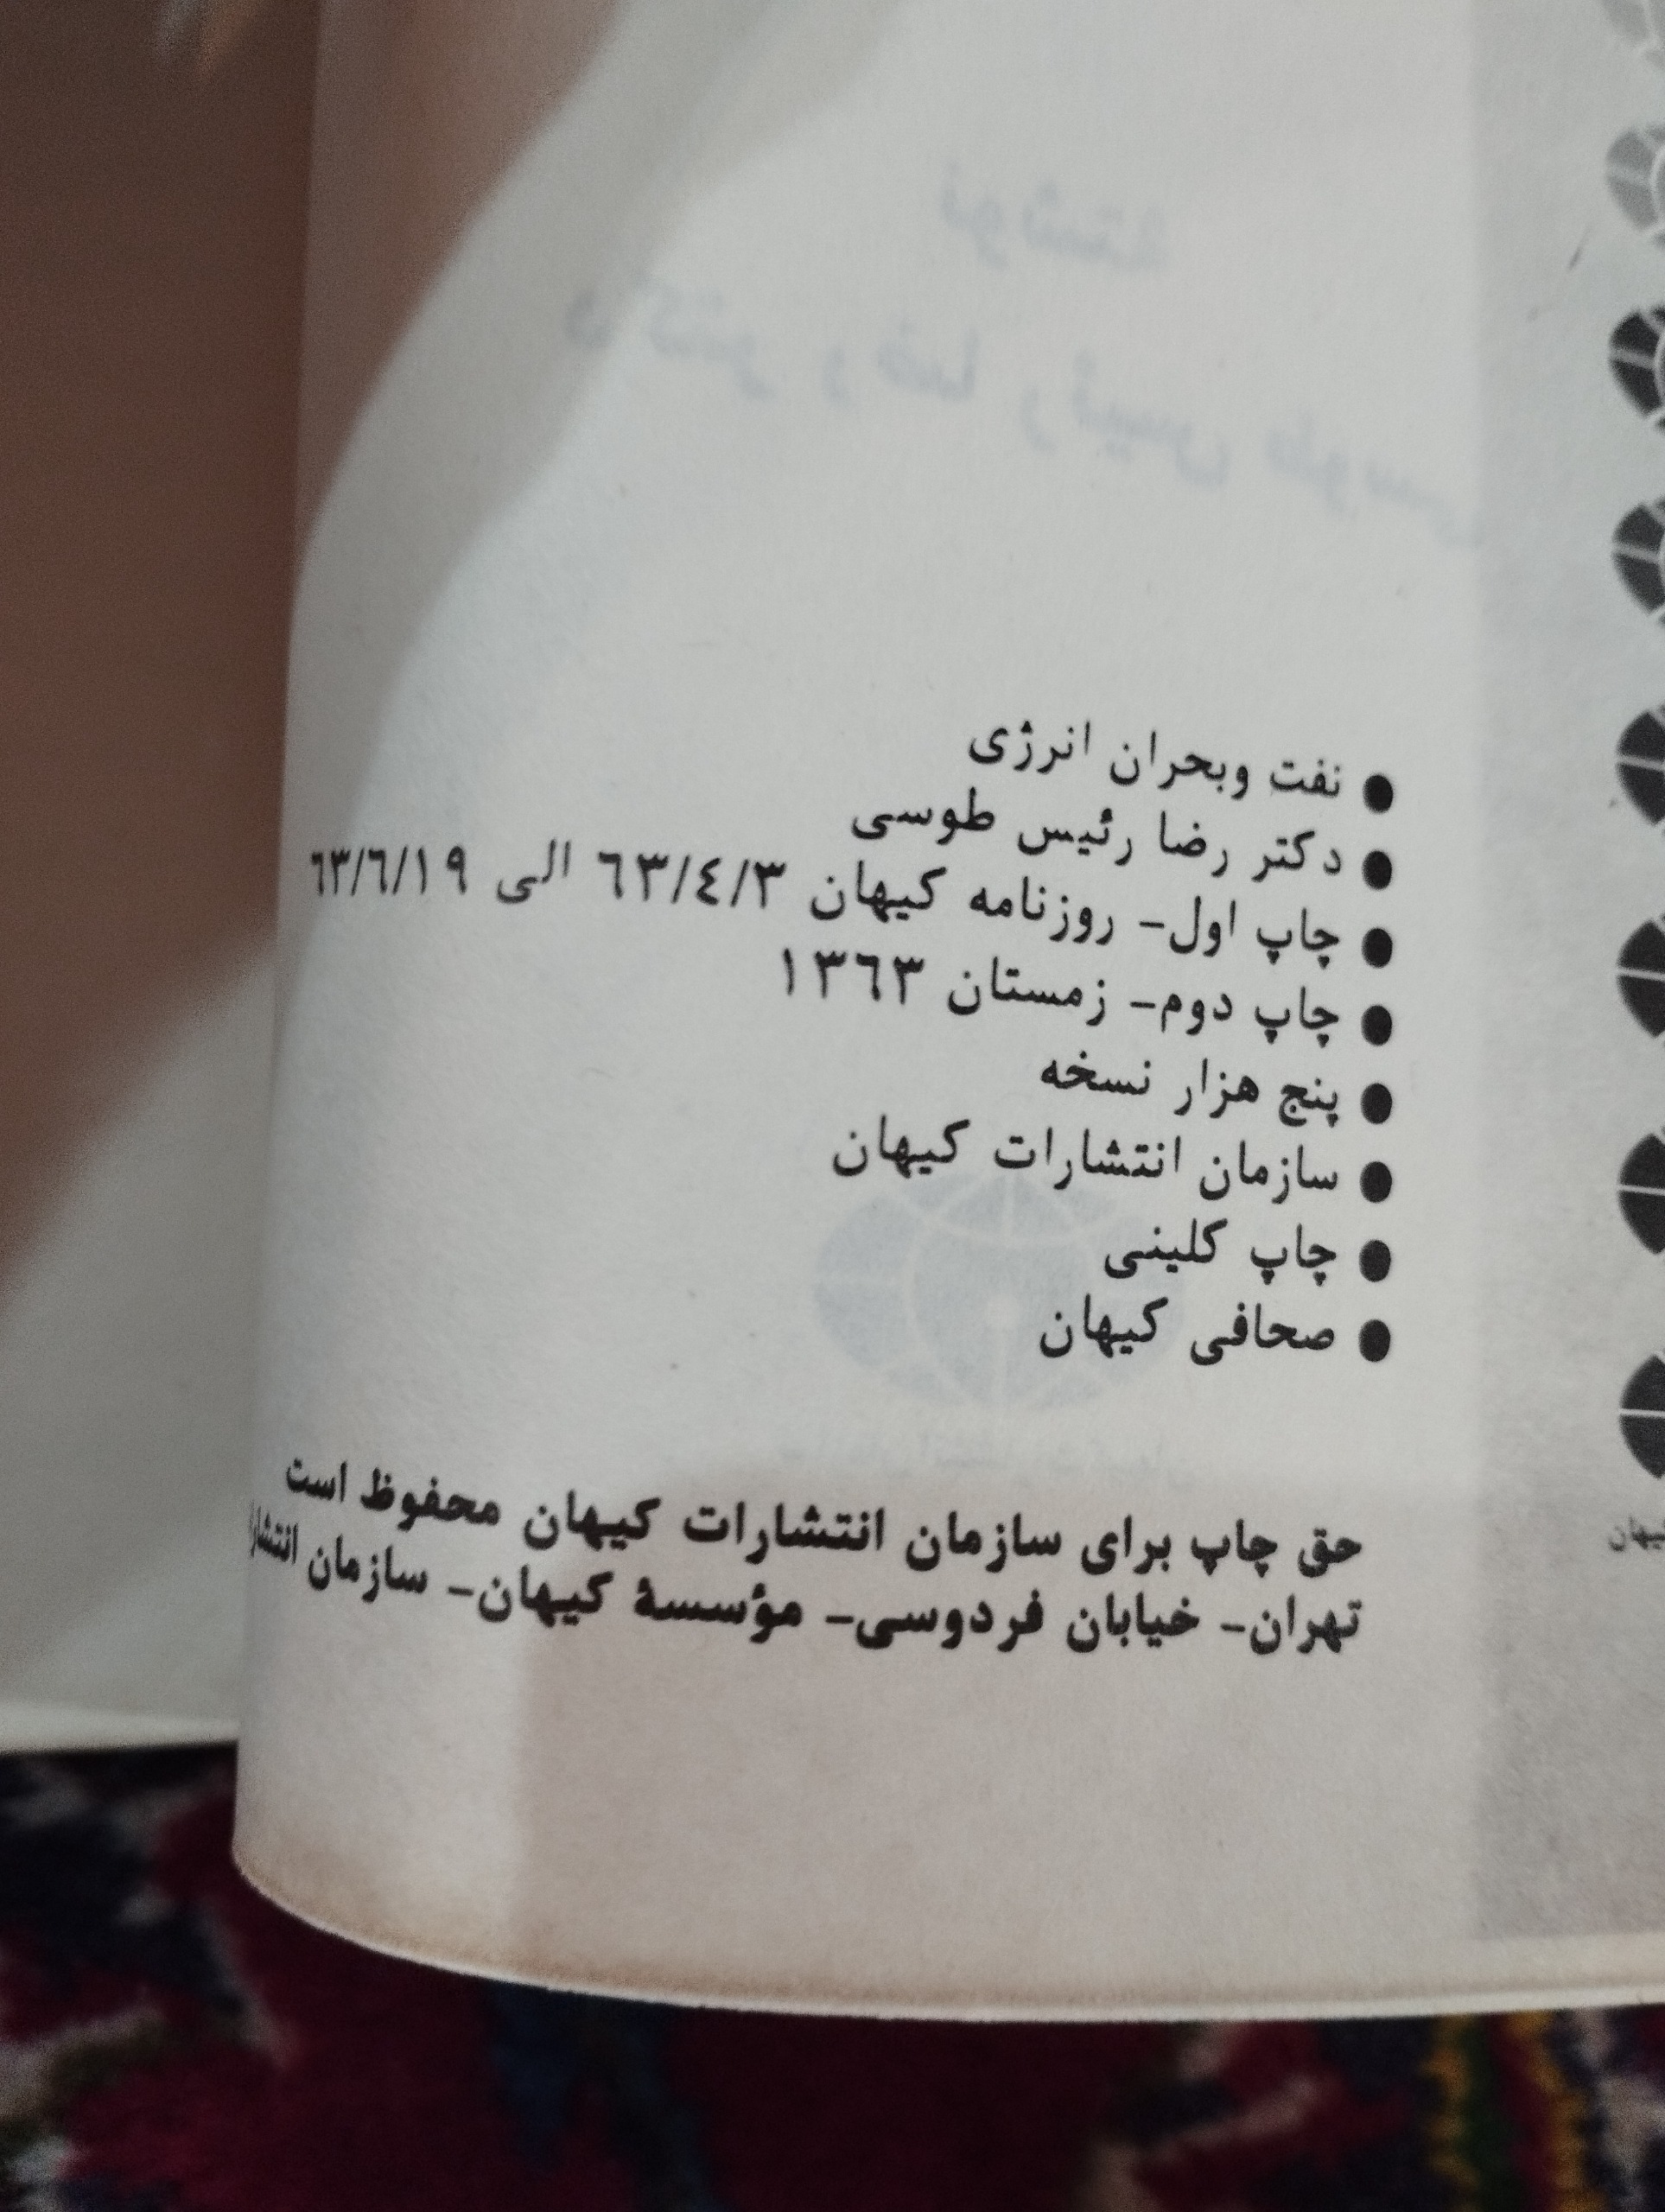 نوشتهٔ
دکتر رضا رئیس طوسی
● نفت وبحران انرژی
● دکتر رضا رئیس طوسی
● چاپ اول- روزنامه کیهان ٦٣/٤/٣ الی ٦٣/٦/١٩
● چاپ دوم- زمستان ١٣٦٣
● پنج هزار نسخه
● سازمان انتشارات کیهان
● چاپ کلینی
● صحافی کیهان
حق چاپ برای سازمان انتشارات کیهان محفوظ است
تهران- خیابان فردوسی- مؤسسهٔ کیهان- سازمان
کیهان